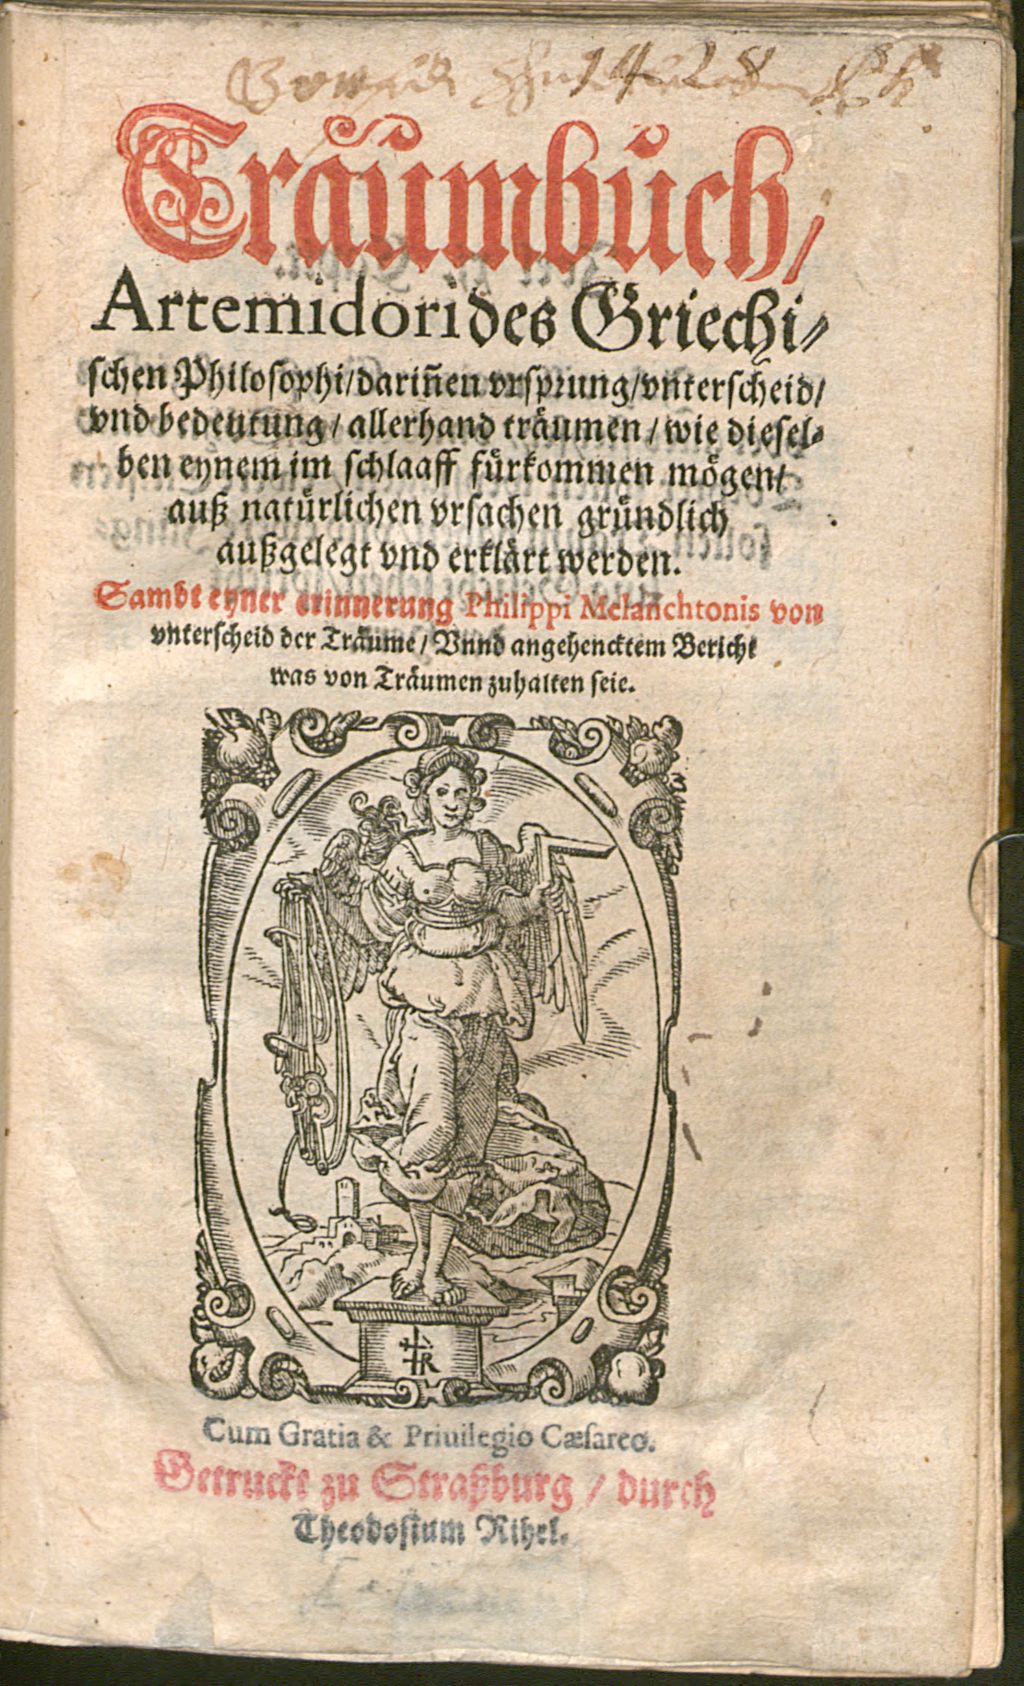 Traumbuch/
Artemidori des Griechi-
schen Philosophi/ dariñen vrsprung/ vnterscheid/
vnd bedeutung/ allerhand träumen/ wie diesel-
ben eynem im schlaaff fürkommen mögen/
auß natürlichen vrsachen gründlich
außgelegt vnd erklärt werden.
Sambt eyner erinnerung Philippi Melanchtonis von
vnterscheid der Träume/ Vnnd angehencktem Bericht
was von Träumen zuhalten seie.
R
Cum Gratia & Priuilegio Cæsareo.
Getruckt zu Straßburg/ durch
Theodosium Rihel.